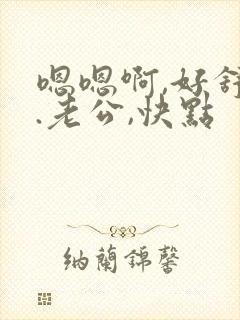 嗯嗯啊,好舒
.老公,快點
纳蘭錦馨